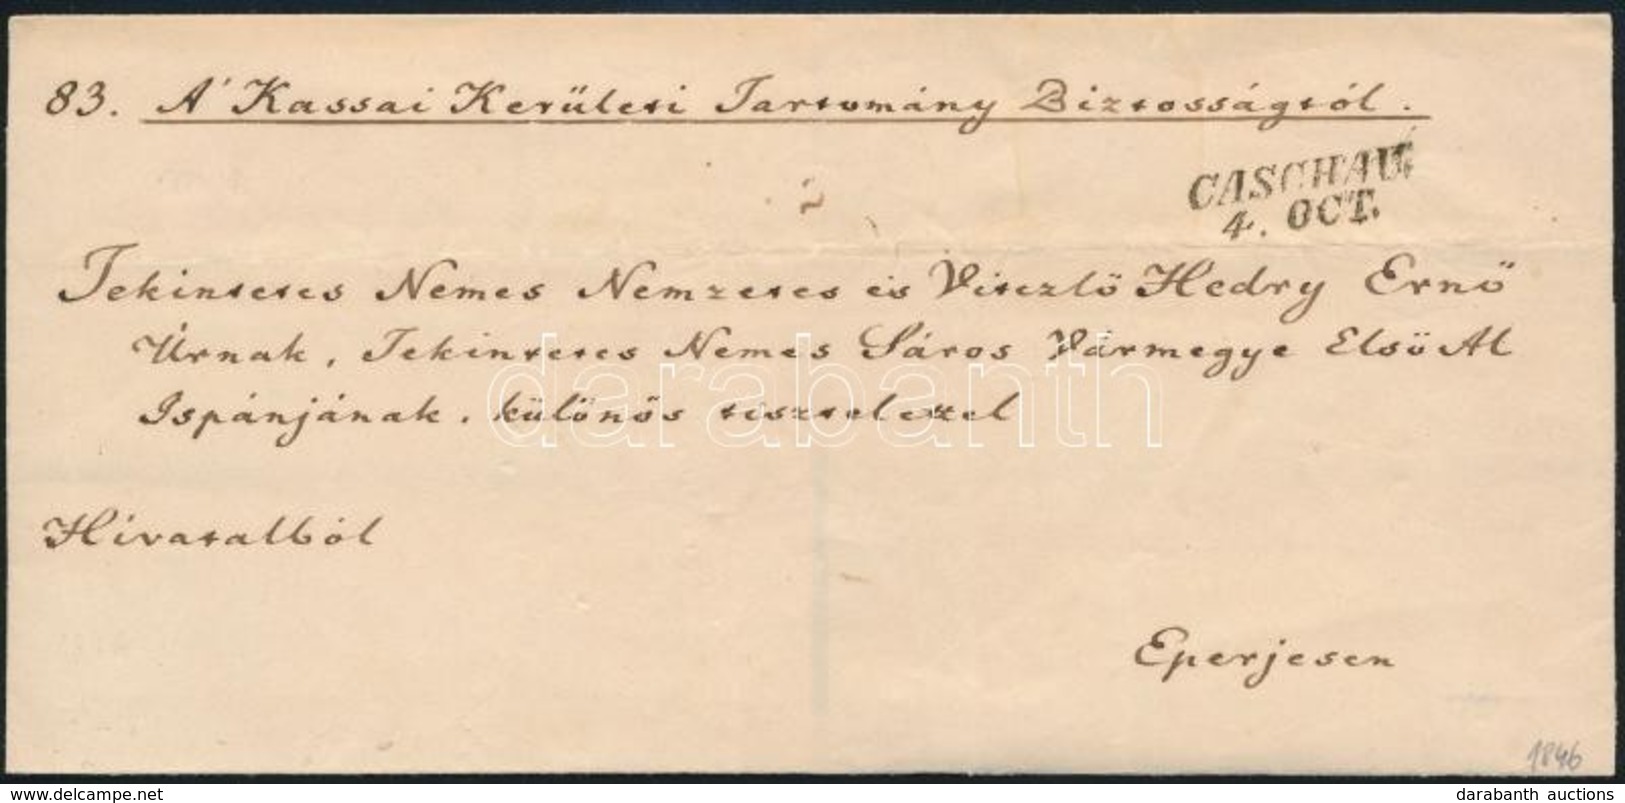 83. A' Kassai Kerületi Tartomány Biztosságtól.
CASCHAU
4. OCT.
Tekintetes Nemes Nemzetes és Vitézlő Hedry Ernő
Úrnak, Tekintetes Nemes Sáros Vármegye Első Al
Ispánjának, különös tisztelettel
darabanth
Hivatalból
Eperjesen
1846
delcampe.net
darabanth auctions